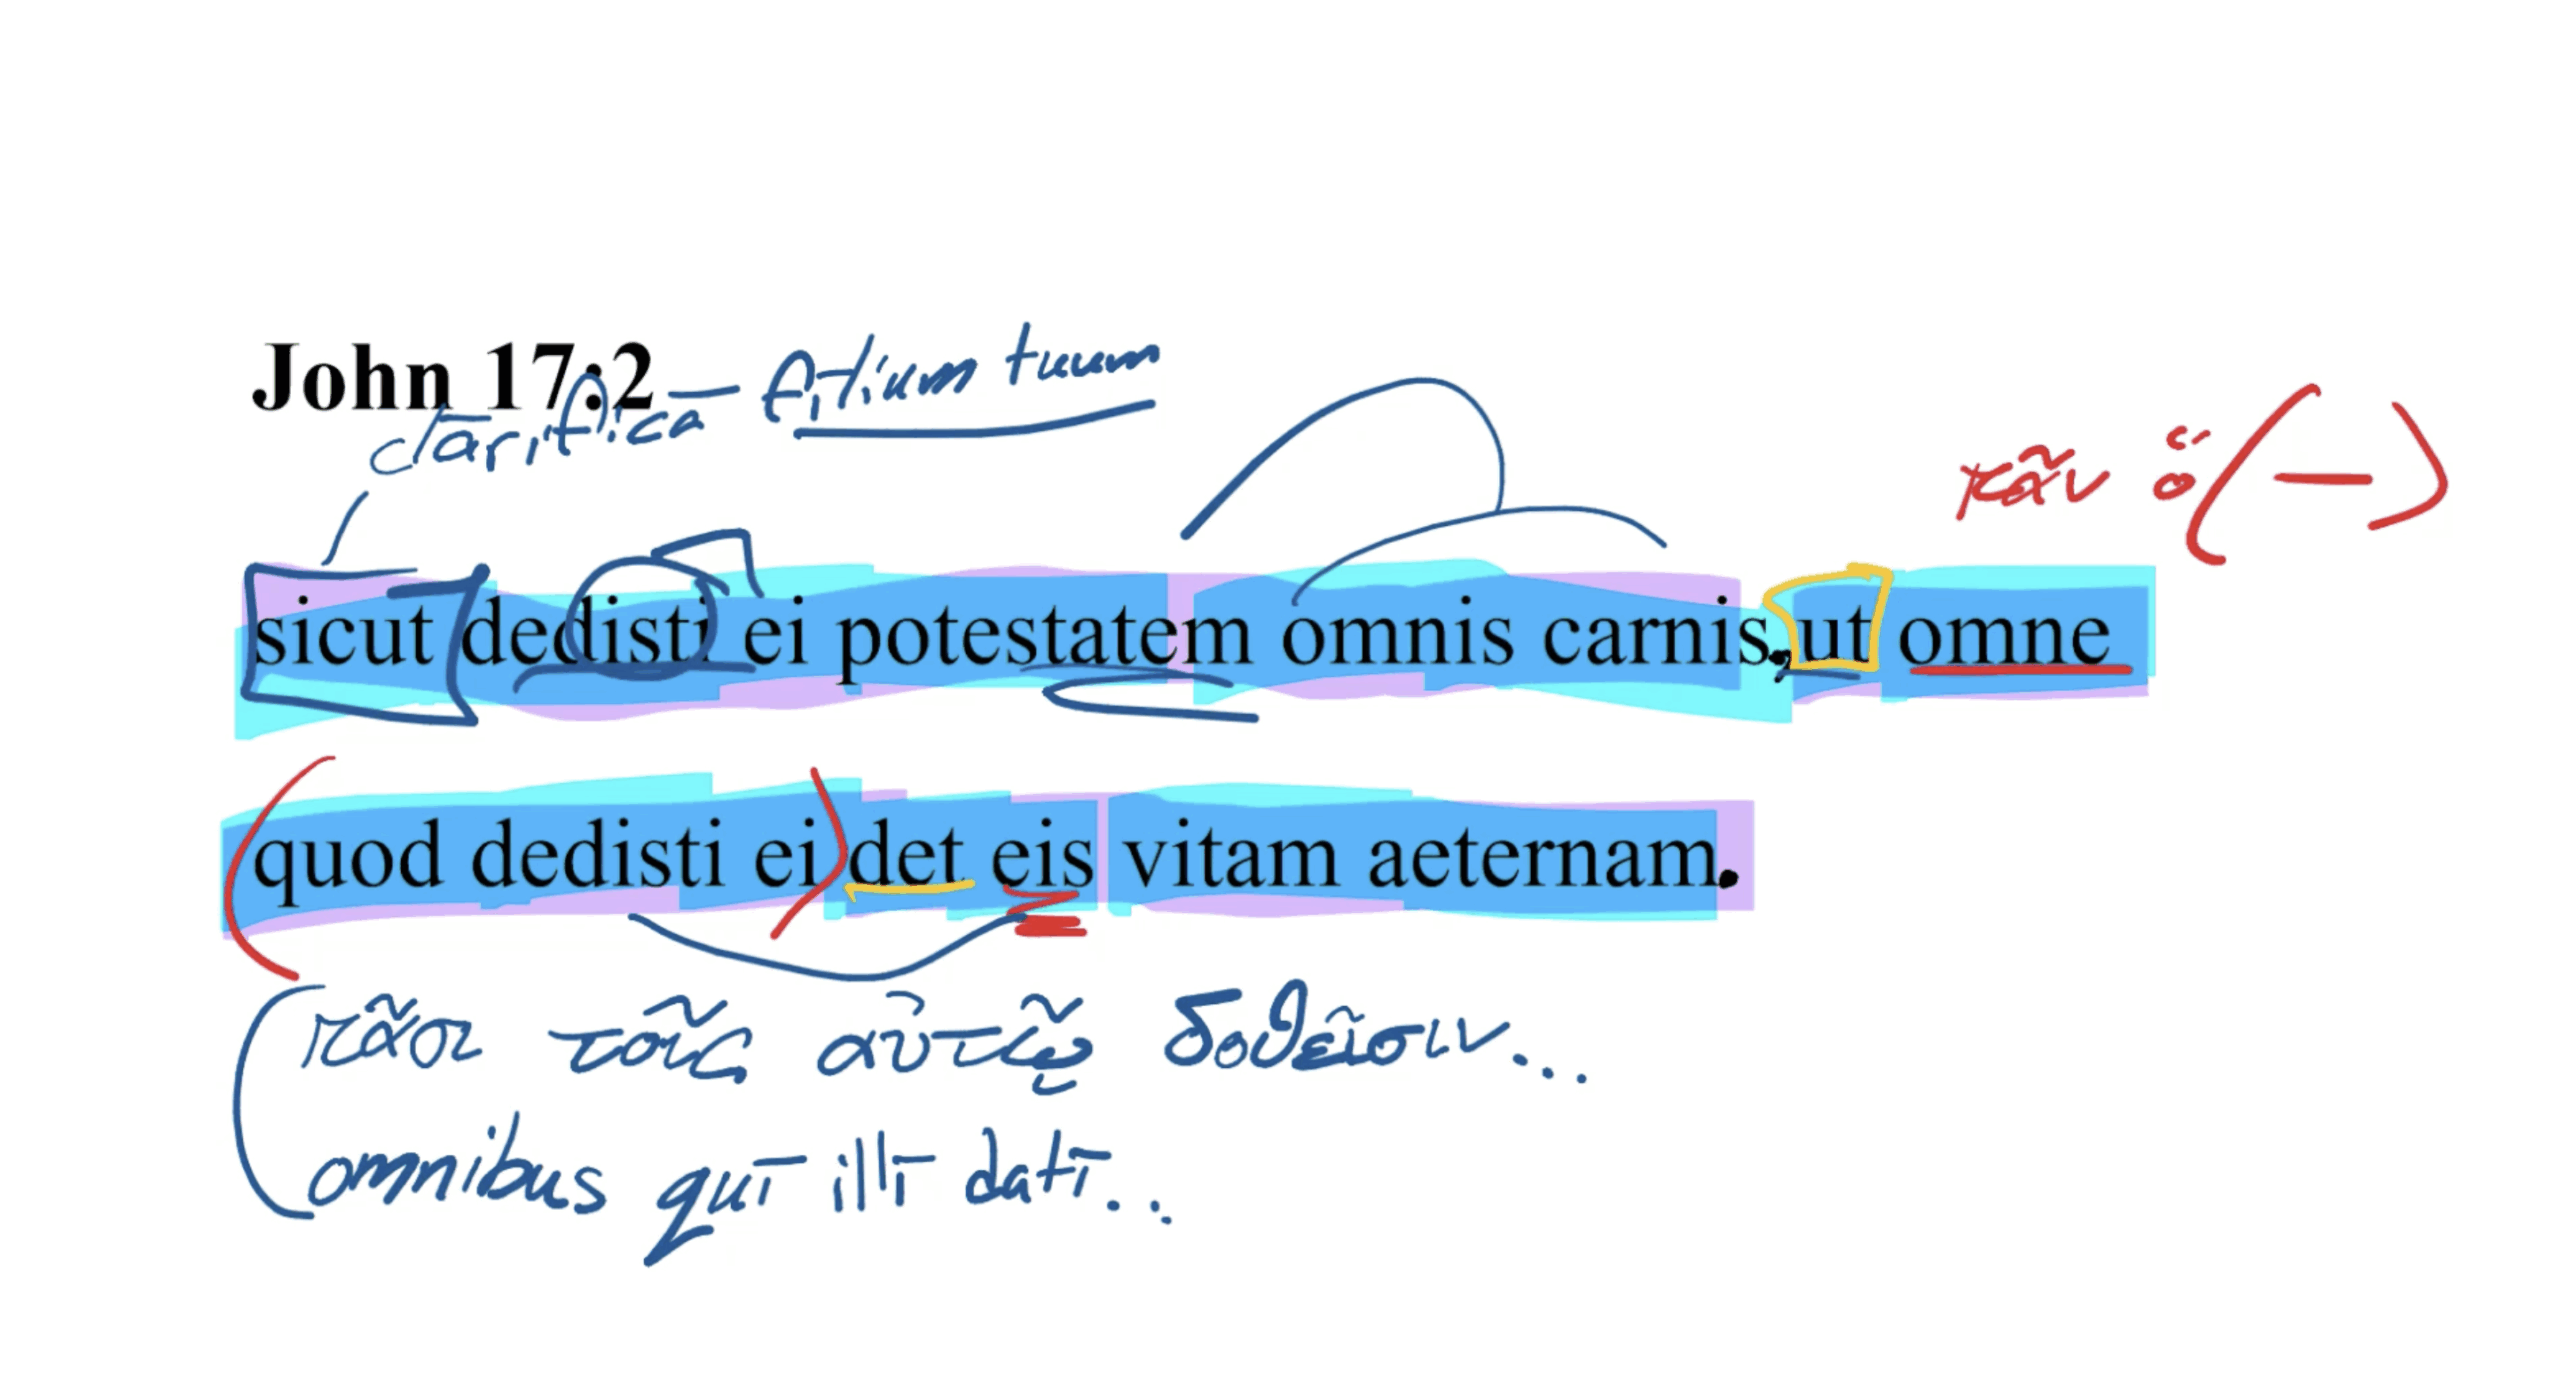 John 17:2
clārificā – fīlium tuum
πᾶν ὅ (—)
sicut dedisti ei potestatem omnis carnis, ut omne
quod dedisti ei det eis vitam aeternam.
πᾶσι τοῖς αὐτῷ δοθεῖσιν...
omnibus quī illī datī...